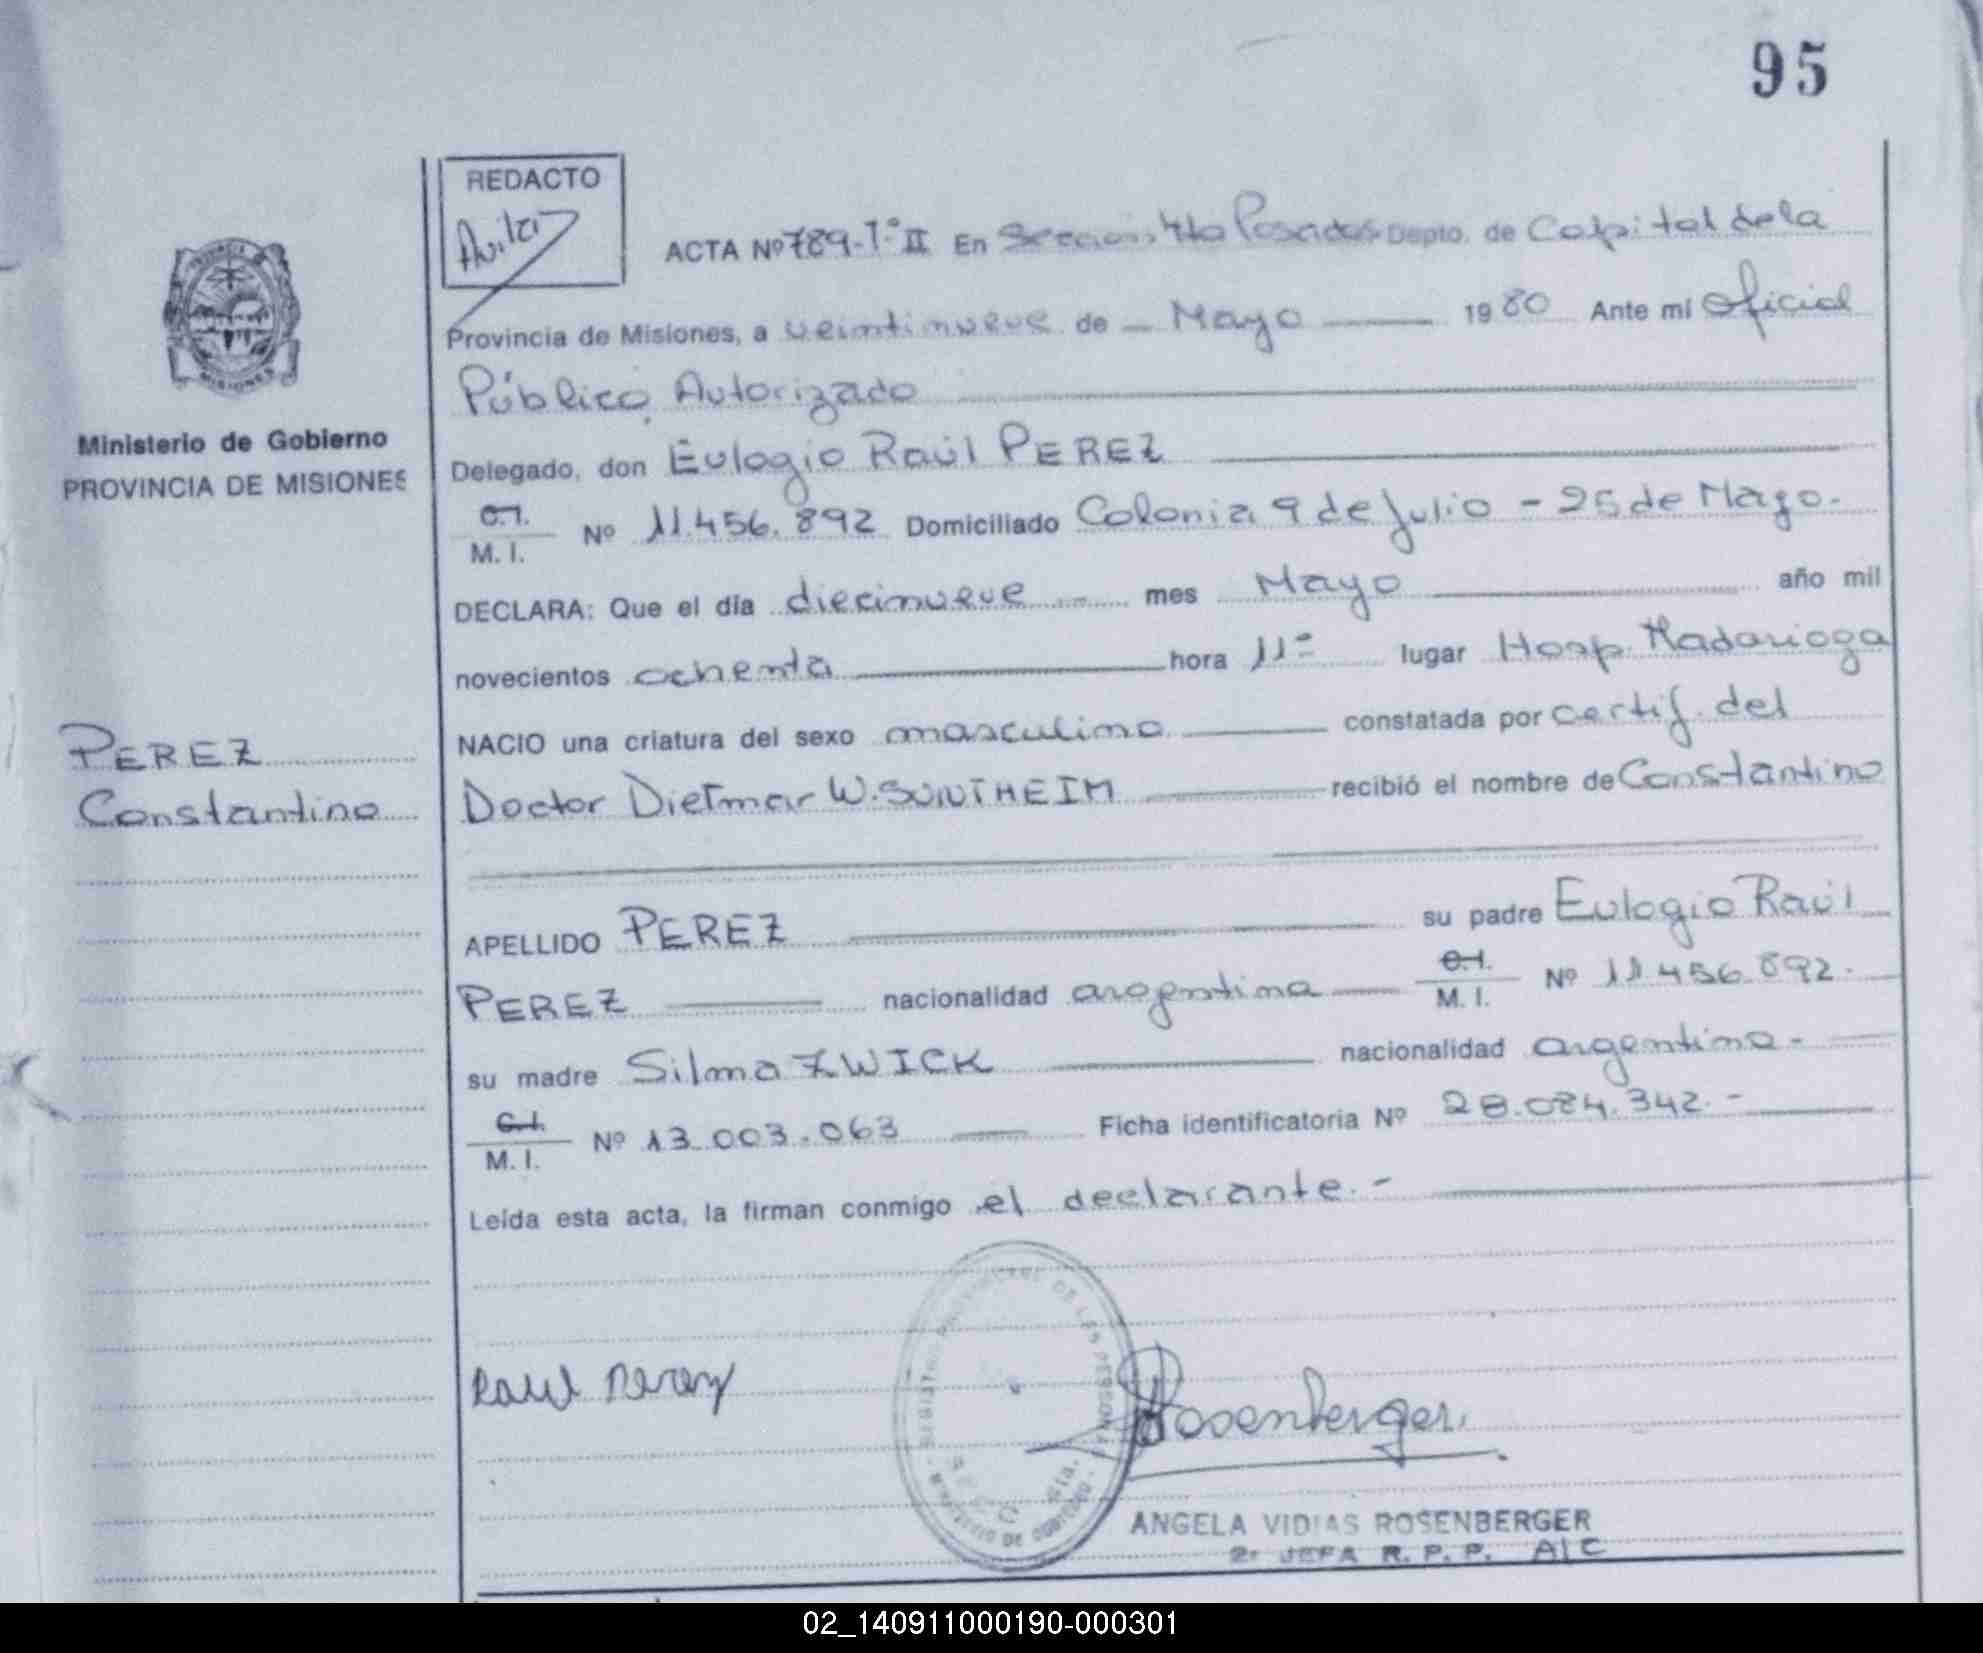 95
REDACTO
Avila
ACTA Nº 789-Tº II En Sección 4ta Posadas Depto. de Capital de la
Provincia de Misiones, a veintinueve de Mayo 1980 Ante mi Oficial
Público Autorizado
Ministerio de Gobierno
PROVINCIA DE MISIONES
Delegado, don Eulogio Raúl PEREZ
C.I.
M. I. Nº 11.456.892 Domiciliado Colonia 9 de Julio - 25 de Mayo.
DECLARA: Que el día diecinueve mes Mayo año mil
novecientos ochenta hora 11= lugar Hosp. Madariaga
PEREZ
Constantino
NACIO una criatura del sexo masculino constatada por certif. del
Doctor Dietmar W. SUNTHEIM recibió el nombre de Constantino
APELLIDO PEREZ su padre Eulogio Raúl
PEREZ nacionalidad argentina C.I. M. I. Nº 11.456.892.
su madre Silma ZWICK nacionalidad argentina.-
C.I.
M. I. Nº 13.003.063 Ficha identificatoria Nº 28.084.342.-
Leída esta acta, la firman conmigo el declarante.-
REGISTRO PROVINCIAL DE LAS PERSONAS
MINISTERIO DE GOBIERNO
4ta.
Raul Perez
Rosenberger
ANGELA VIDIAS ROSENBERGER
2º JEFA R. P. P. A/C
02_140911000190-000301